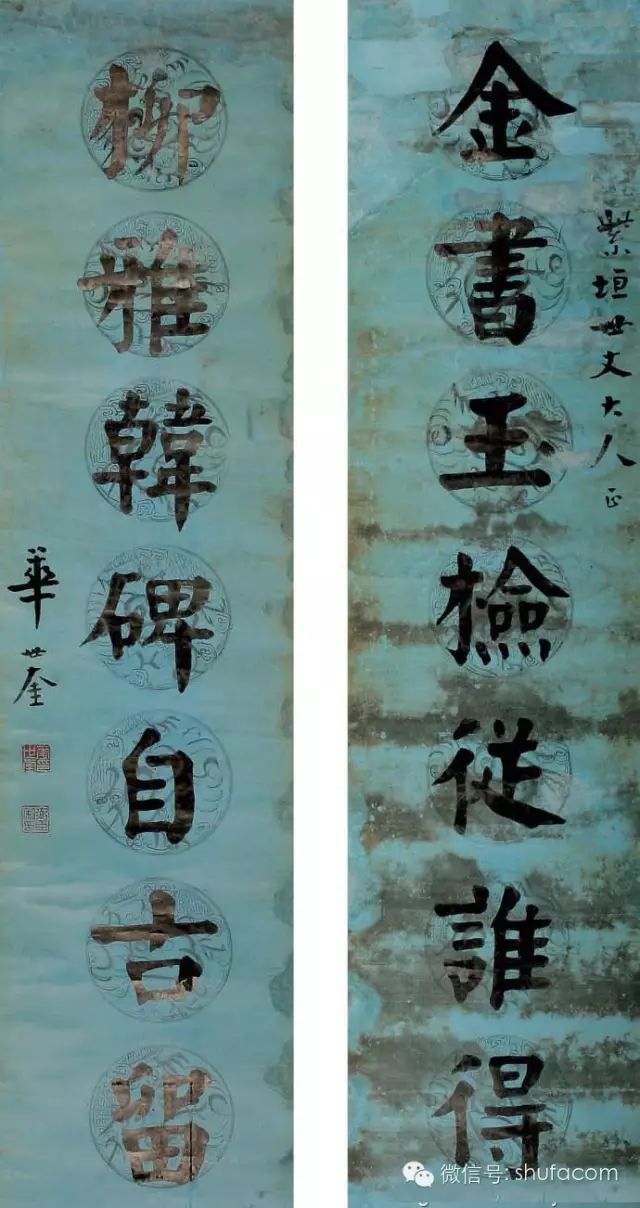 紫垣世丈大人正
金書玉檢從誰得
柳雅韓碑自古留
華世奎
微信号: shufacom